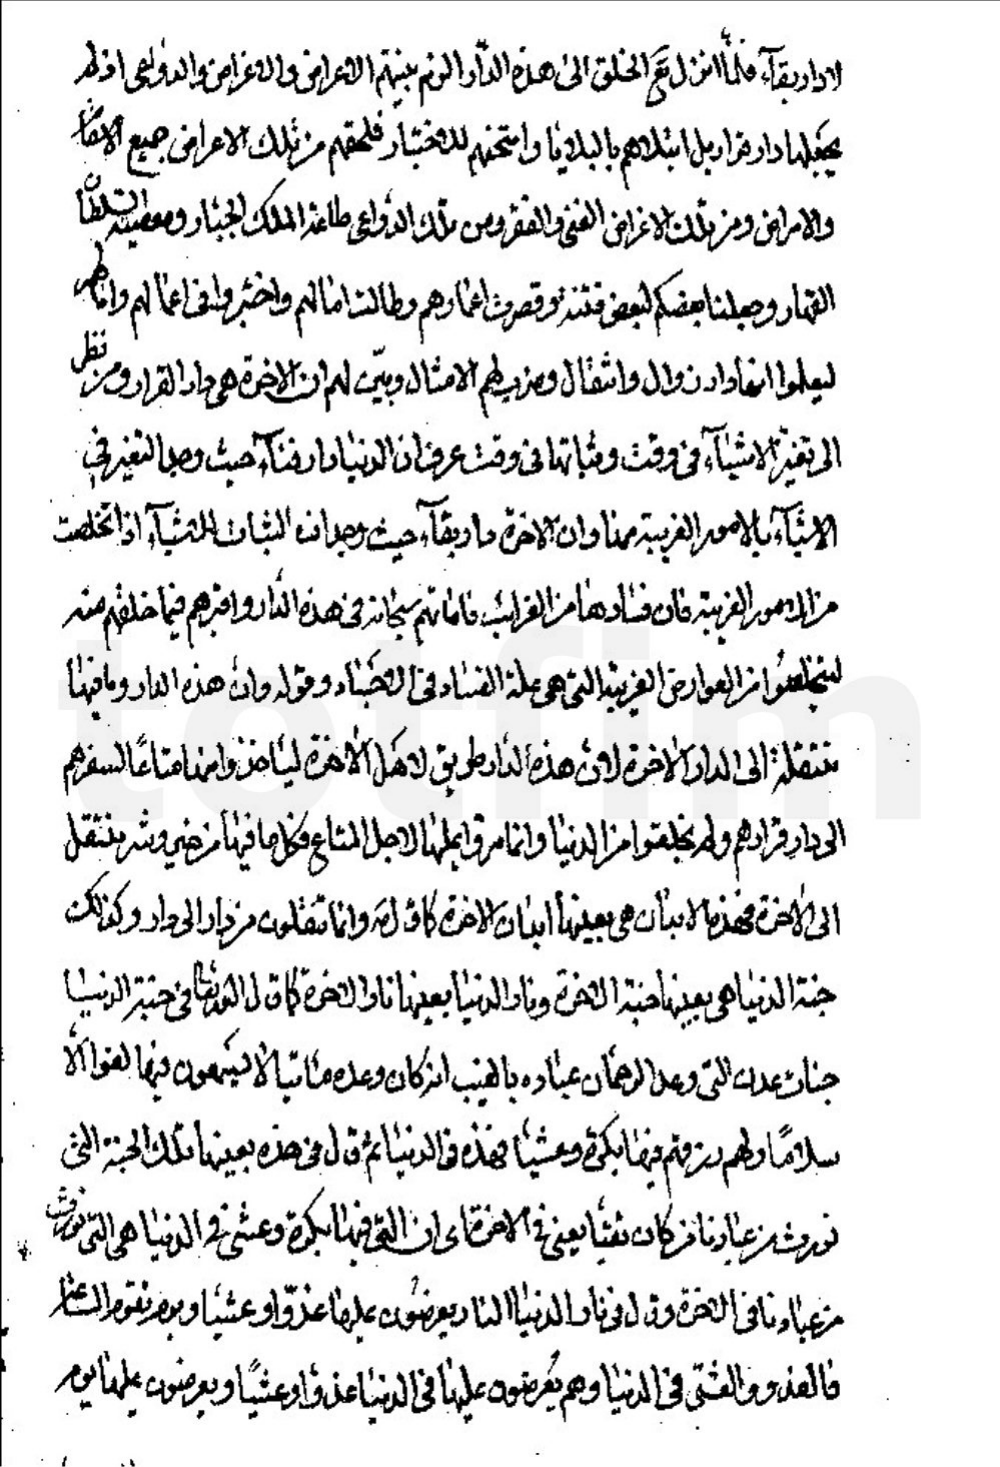 لا دار بقآء فلمّا انزل مع الخلق الى هذه الدّار الزم بينهم الاعراض والاغراض والدواعى اذ لم
يجعلها دار قرار بل ابتلاهم بالبلايا وامتحنهم للاختبار فلحقهم من تلك الاعراض جميع الاسقام
والامراض ومن تلك الاغراض الغنى والفقر ومن تلك الدواعى طاعة الملك الجبّار ومعصية السلطان
القهار وجعلنا بعضكم لبعض فتنة وقصرت اعمارهم وطالت امالهم واختبروا فى اعمالهم واماهم
ليعلموا انها دار زوال وانتقال وضرب لهم الامثال وبيّن لهم ان الاخرة هى دار القرار ومن نظر
الى تغيّر الاشيآء فى وقت وثباتها فى وقت عرف ان الدنيا دار فنآء حيث وصل التغير فى
الاشيآء بالامور الغريبة منها وان الاخرة دار بقآء حيث وجدان الثبات للاشيآء اذا تخلصت
من الامور الغريبة فان فسادها من الغرائب فاماتهم سبحانه فى هذه الدّار واقبرهم فيما خلقهم منه
ليتخلصوا من العوارض الغريبة التى هى علة الفساد فى الاجساد وقوله وان هذه الدار وما فيها
منتقلة الى الدار الاخرة لانّ هذه الدار طريق لاهل الاخرة ليأخذوا منها متاعًا لسفرهم
الى دار قرارهم ولم يخلقوا من الدنيا وانما مرّوا عليها لاجل المتاع فكل ما فيها من خير وشر منتقل
الى الاخرة فهذه الابدان هى بعينها ابدان الاخرة كما قال ع وانما تنقلون من دار الى دار وكذلك
جنة الدنيا هى بعينها جنة الاخرة ونار الدنيا بعينها نار الاخرة كما قال الله تعالى فى جنة الدنيا
جنات عدن التى وعد الرحمان عباده بالغيب انه كان وعده مأتيا لا يسمعون فيها لغوا الّا
سلامًا ولهم رزقهم فيها بكرة وعشيّا فهذه فى الدنيا ثم قال فى هذه بعينها تلك الجنة التى
نورث من عبادنا من كان تقيّا يعنى فى الاخرة اى ان التى فيها بكرة وعشى فى الدنيا هى التى نورث
من عبادنا فى الاخرة وقال فى نار الدنيا النار يعرضون عليها غدوّا وعشيّا ويوم تقوم الساعة
فالغدو والعشى فى الدنيا وهم يُعرضون عليها فى الدنيا غدوّا وعشيًّا ويعرضون عليها يوم
totfim